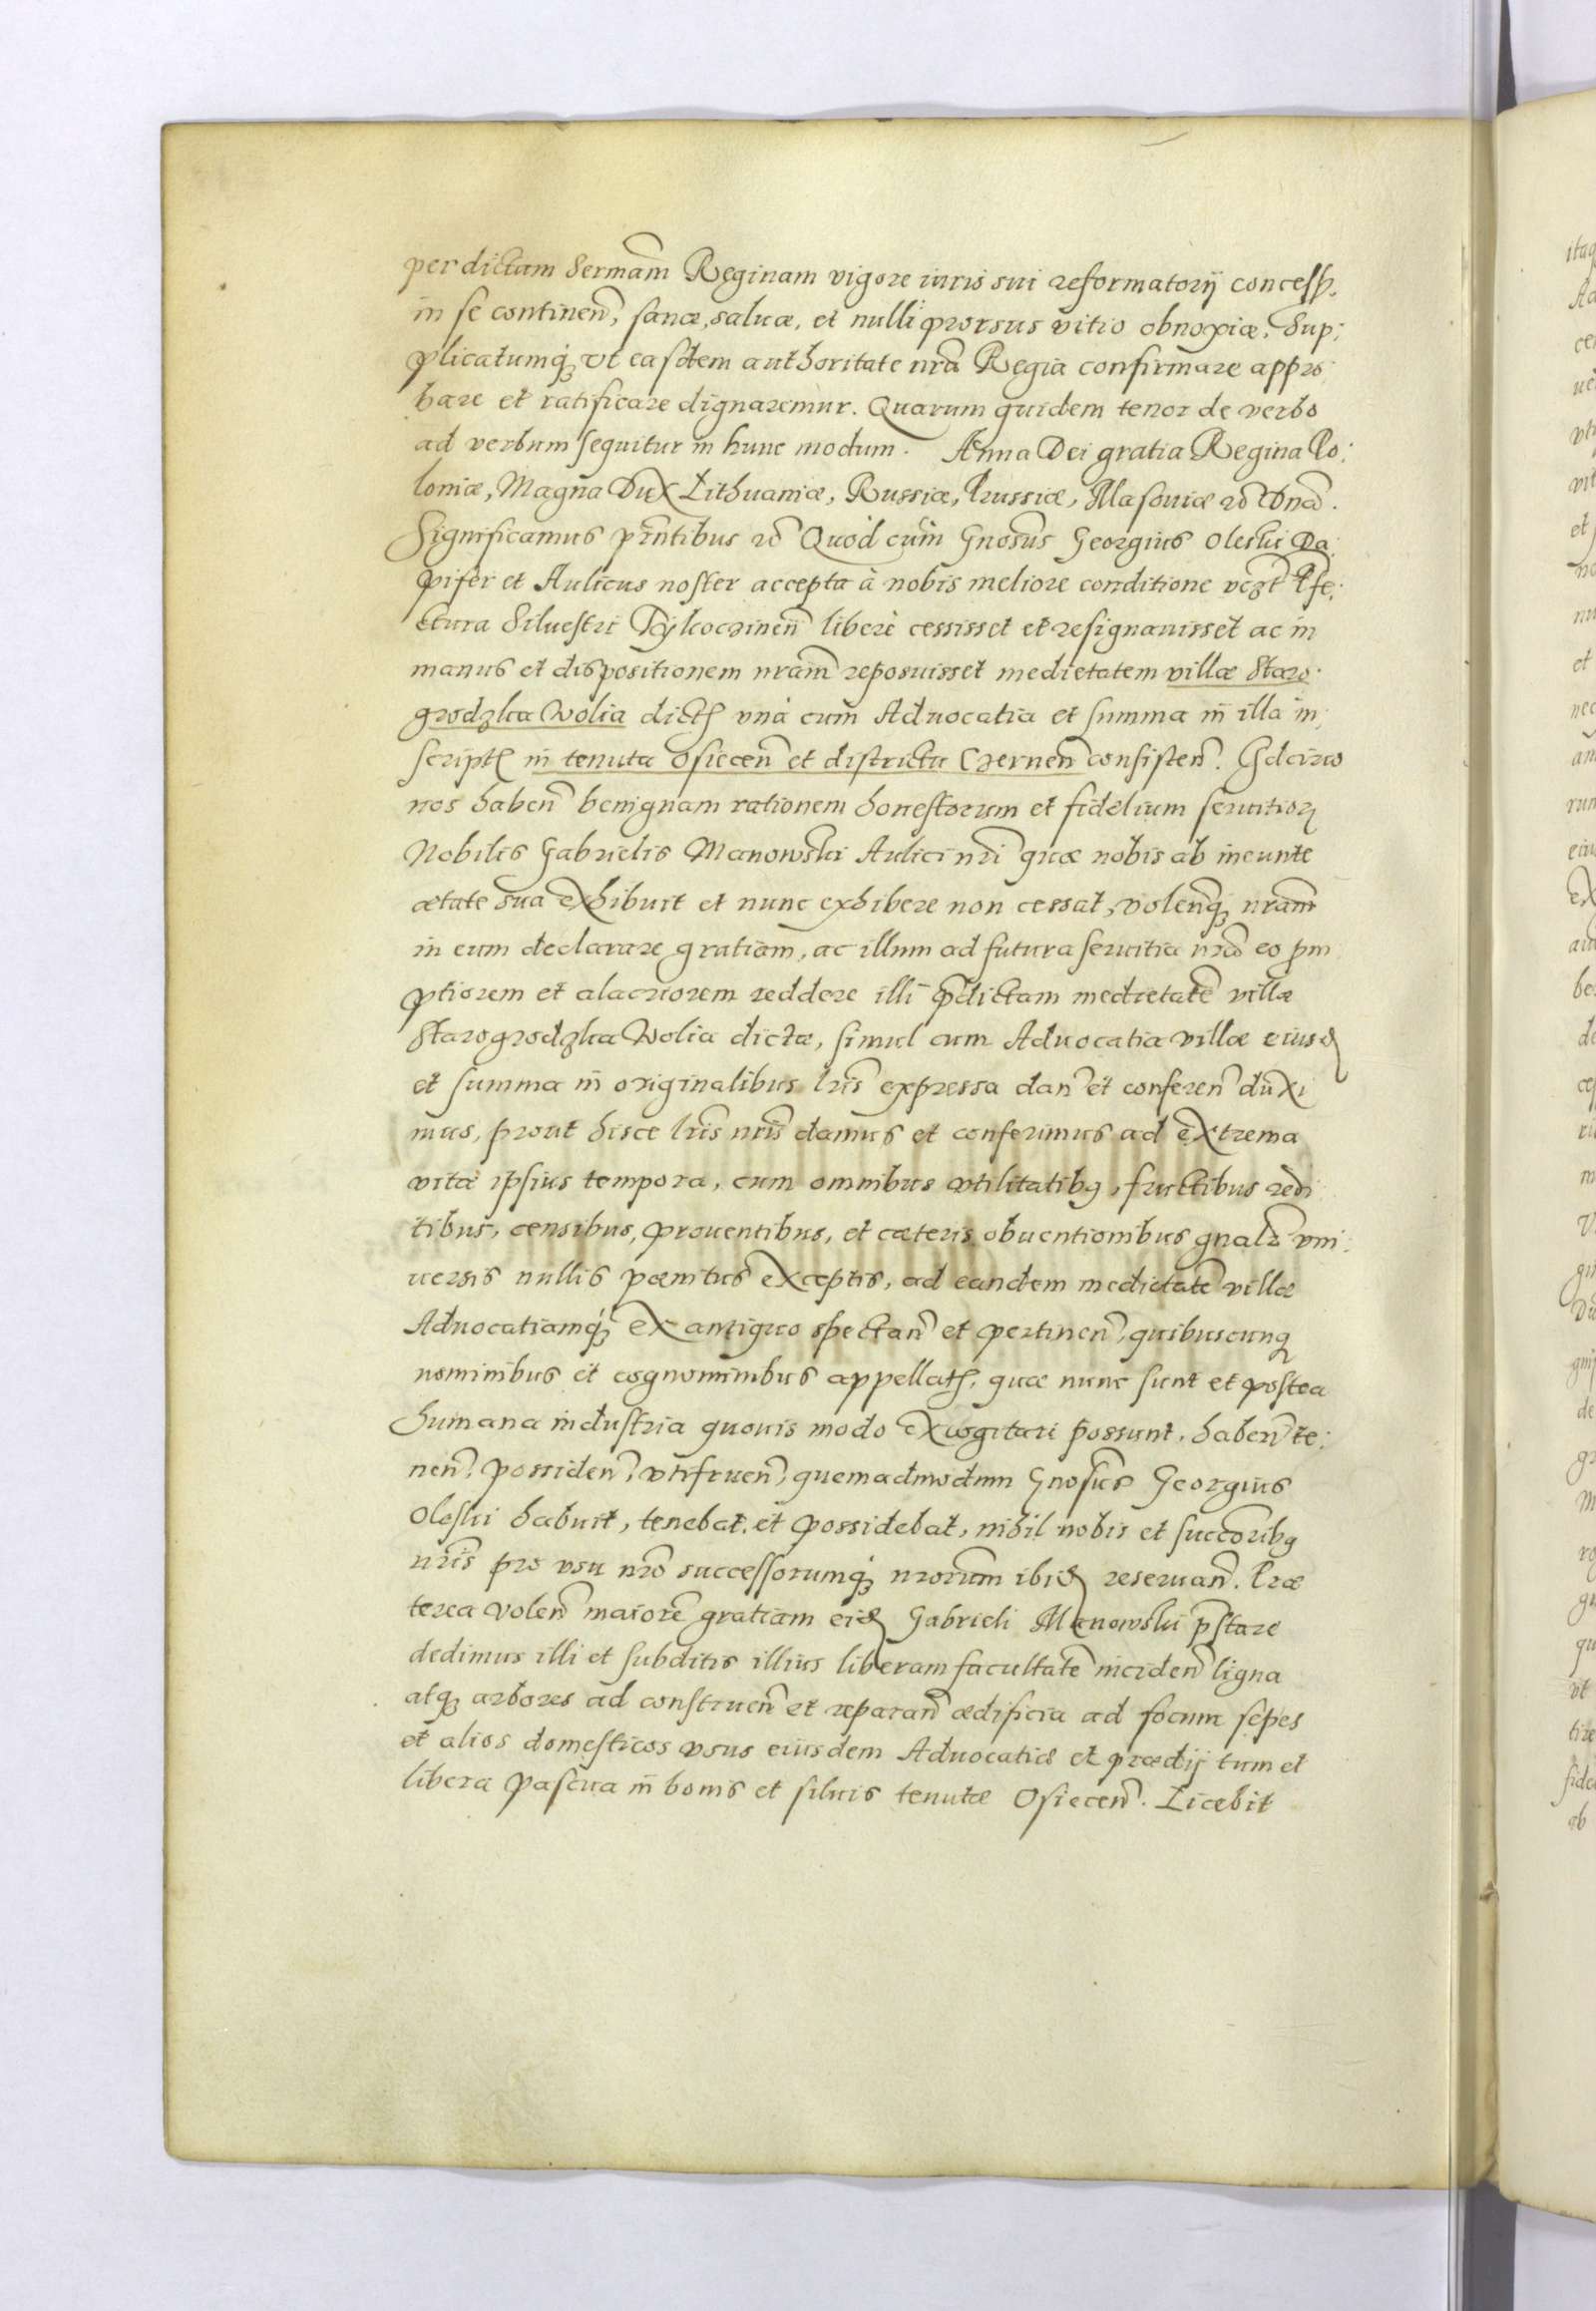 per dictam Sermam̃ Reginam vigore iuris sui reformatorij concess.
in se continen̄, sanæ, saluæ, et nulli prorsus vitio obnoxiæ, Sup:
plicatumq́ue vt easdem authoritate nr̄a Regia confirmare appro
bare et ratificare dignaremur. Quarum quidem tenor de verbo
ad verbum sequitur in hunc modum. Anna Dei gratia Regina Po:
loniæ, Magna Dux Lithuaniæ, Russiæ, Prussiæ, Masouiæ
Significamus pr̄ntibus Quòd cùm Gnosus̄ Georgius Oleski Da
pifer et Aulicus noster accepta à nobis meliore conditione Pfe:
ctura Siluestri Tykoczinen̄ liberè cessisset et resignauisset ac in
manus et dispositionem nram̄ reposuisset medietatem villæ Staro
grodzka Wolia dict. vnà cum Aduocatia et summa in̄ illa in
script. in̄ tenuta Osiecen̄ et districtu Czernen̄ consisten̄. Idcirco
nos haben̄ benignam rationem honestorum et fidelium seruitior.
Nobilis Gabrielis Manowski Aulici nr̄i quæ nobis ab ineunte
ætate sua exhibuit et nunc exhibere non cessat, volenq̄ nram̄
in eum declarare gratiam, ac illum ad futura seruitia nr̄a eo prm
ptiorem et alacriorem reddere illi p̄dictam medietatē villæ
Starogrodzka Wolia dictæ, simul cum Aduocatia villæ eiusd.
et summa in̄ originalibus lr̄is expressa dan̄ et conferen̄ duxi
mus, prout hisce lr̄is nr̄is damus et conferimus ad extrema
vitæ ipsius tempora, cum omnibus vtilitatibq, fructibus redi
tibus, censibus, prouentibus, et cæteris obuentionibus gnalr̄ vni:
uersis nullis pœnitus exceptis, ad eandem medietatē villæ
Aduocatiamq́ue ex antiquo spectan̄ et pertinen̄, quibuscunq
nominibus et cognominibus appellat. quæ nunc sunt et postea
humana industria quouis modo excogitari possunt, haben̄ te:
nen̄, possiden̄, vtifruen̄, quemadmodum Gnosus̄ Georgius
Oleski habuit, tenebat, et possidebat, nihil nobis et succoribq̄
nr̄is pro vsu nr̄o successorumq́ue nrorum̄ ibid. reseruan̄. Præ
terea volen̄ maiorē gratiam eid. Gabrieli Manowski p̄stare
dedimus illi et subditis illius liberam facultatē inciden̄ ligna
atq. arbores ad construen̄ et reparan̄ ædificia ad focum sepes
et alios domesticos vsus eiusdem Aduocatiæ et prædij tum et
libera pascua in̄ bonis et siluis tenutæ Osiecen̄. Licebit